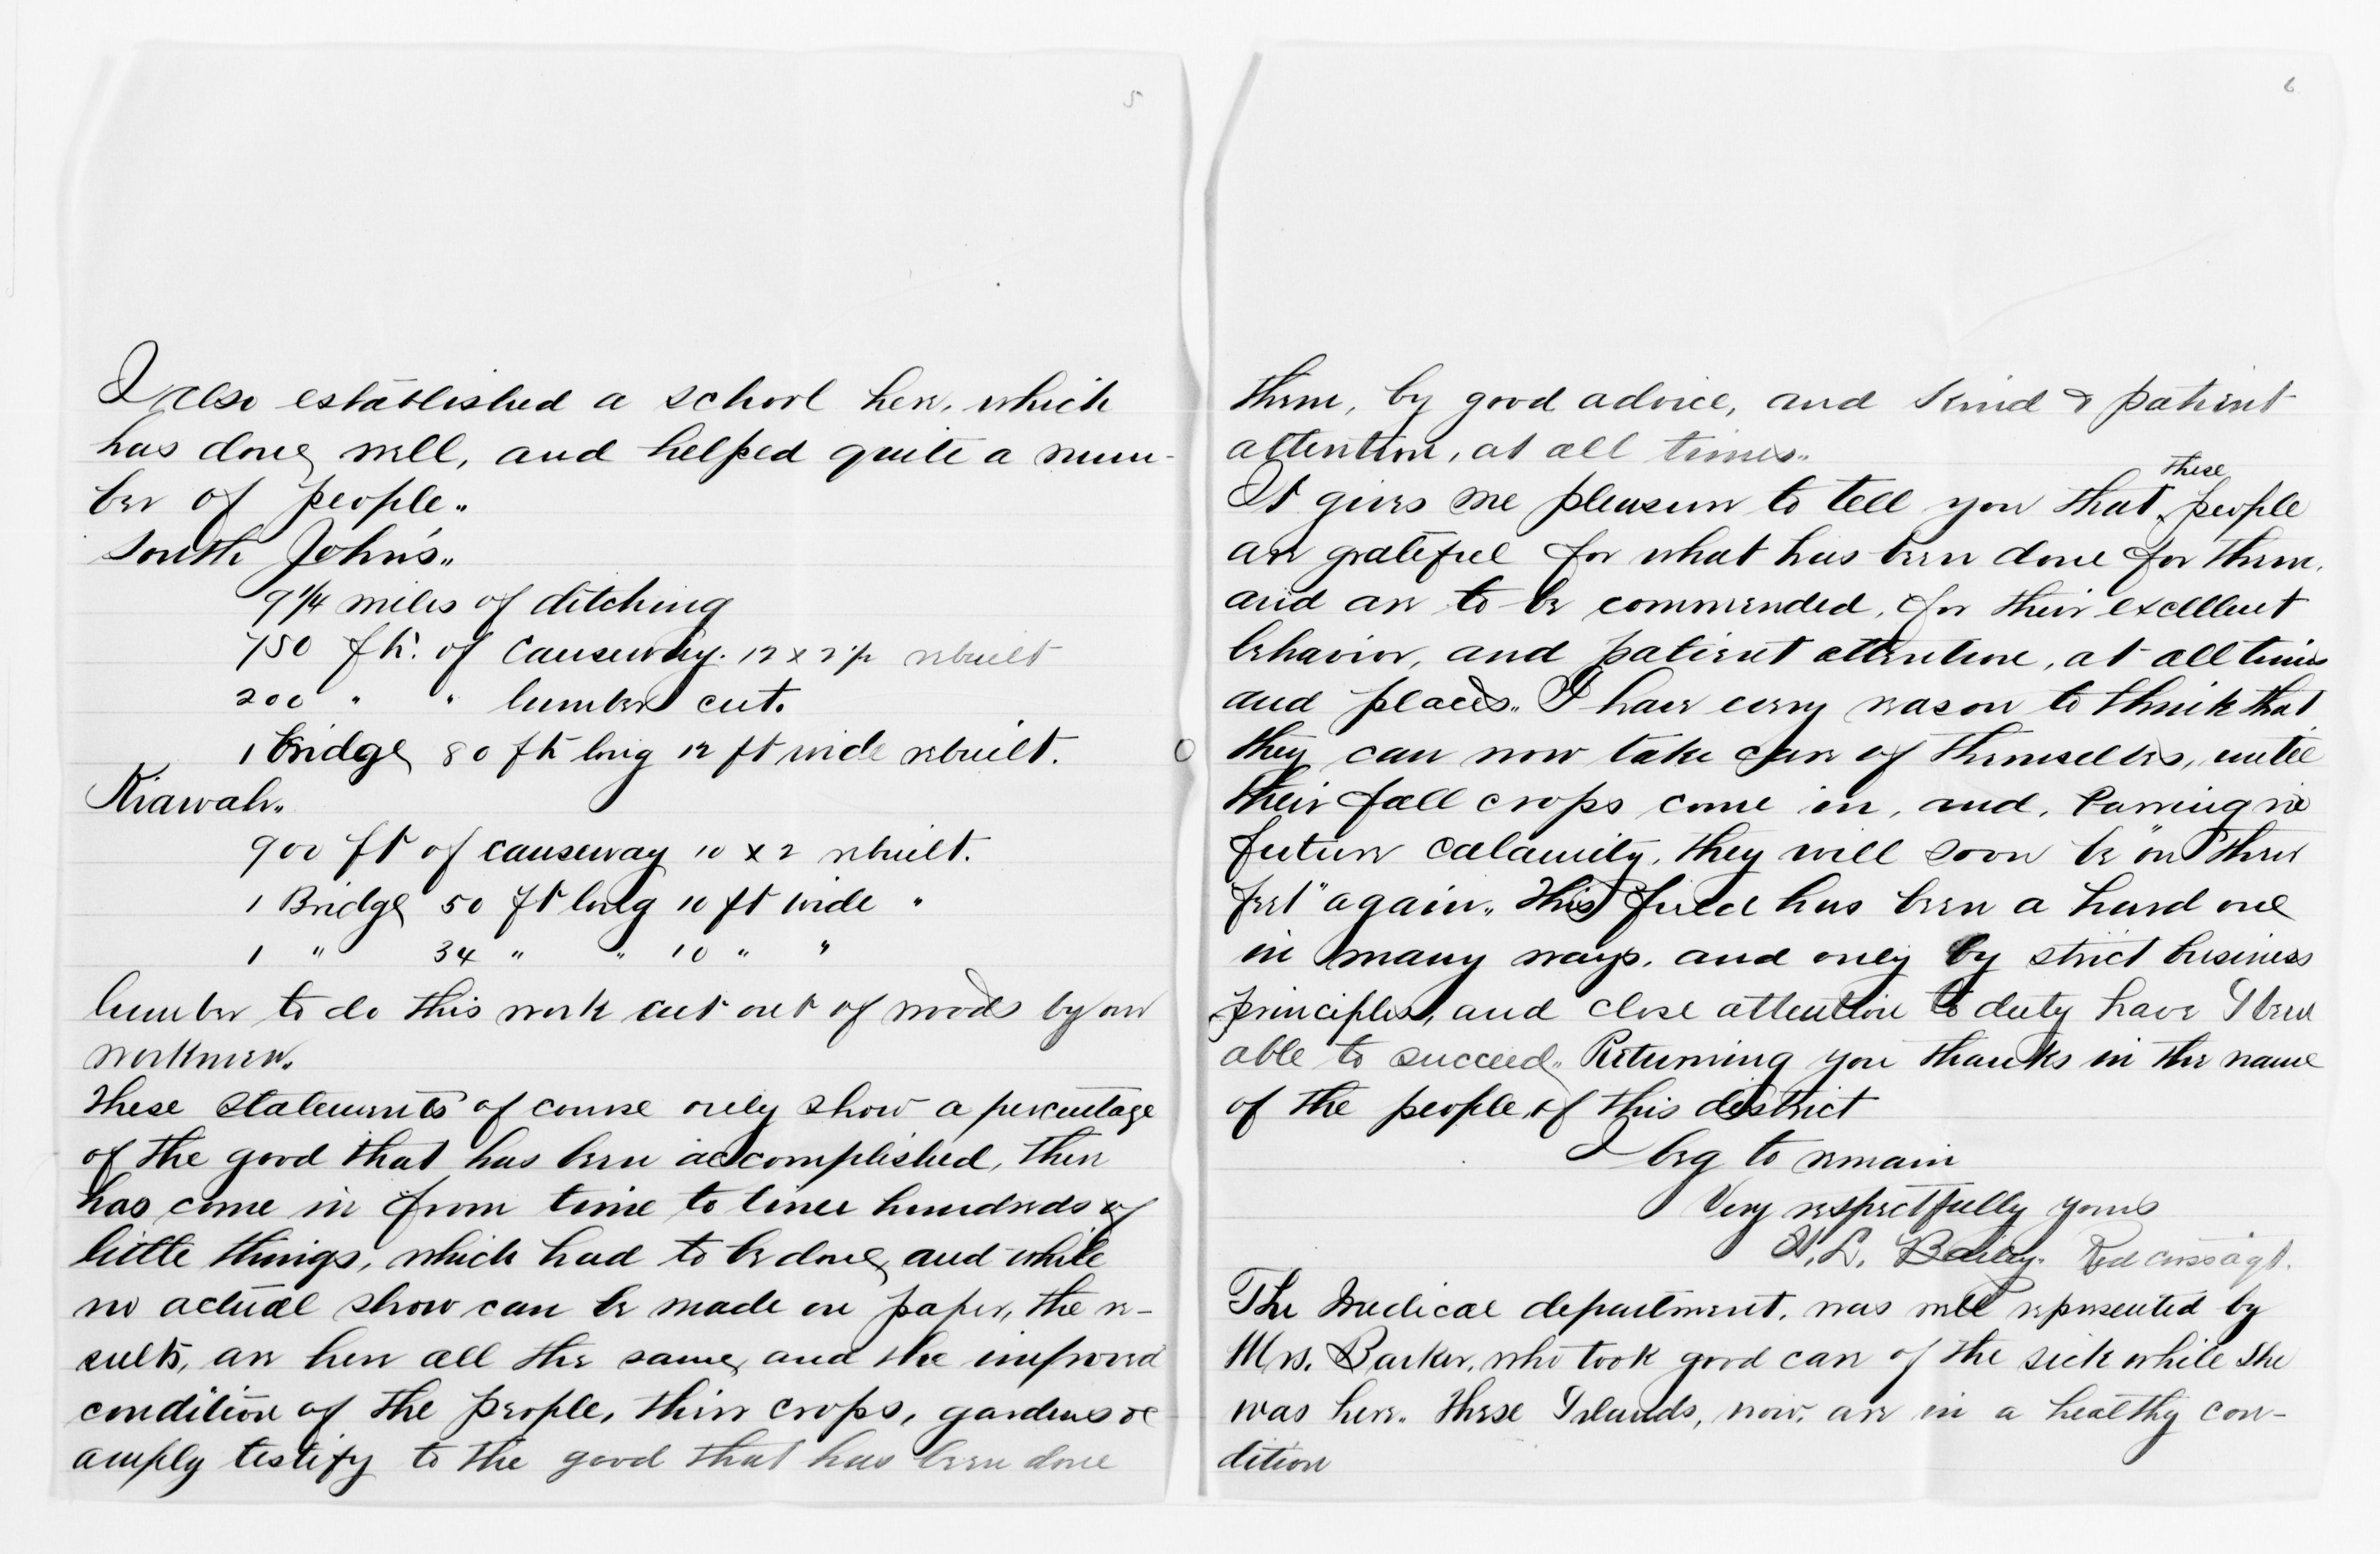 5
I also established a school here, which
has done well, and helped quite a num-
ber of people.
South John's.
9 1/4 miles of ditching
750 ft. of causeway. 12 x 2 1/2 rebuilt
200 " " lumber cut.
1 Bridge 80 ft long 12 ft wide rebuilt.
Kiawah.
900 ft of causeway 10 x 2 rebuilt.
1 Bridge 50 ft long 10 ft wide "
1 " 34 " " 10 " "
lumber to do this work cut out of woods by our
workmen.
These statements of course only show a percentage
of the good that has been accomplished, there
has come in from time to time hundreds of
little things, which had to be done, and while
no actual show can be made on paper, the re-
sults, are here all the same, and the improved
condition of the people, their crops, gardens &c
amply testify to the good that has been done
6
them, by good advice, and kind & patient
attention, at all times.
It gives me pleasure to tell you that these people
are grateful for what has been done for them,
and are to be commended, for their excellent
behavior, and patient attention, at all times
and places. I have every reason to think that
they can now take care of themselves, until
their fall crops come in, and, barring no
future calamity, they will soon be "on their
feet" again. This field has been a hard one
in many ways, and only by strict business
principles, and close attention to duty have I been
able to succeed. Returning you thanks in the name
of the people, of this district
I beg to remain
Very respectfully yours
H. L. Bailey. Red cross agt.
The Medical department, was well represented by
Mrs. Barker, who took good care of the sick while she
was here. These Islands, now, are in a healthy con-
dition